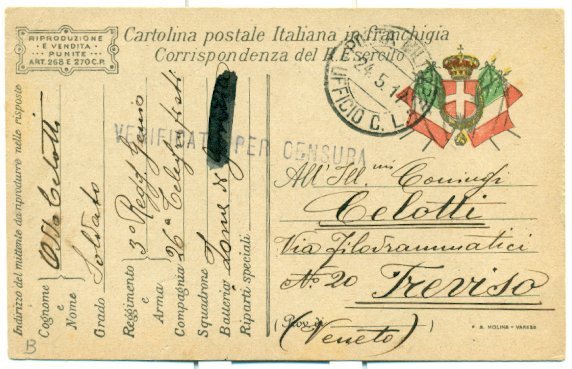 RIPRODUZIONE
E VENDITA
PUNITE
ART. 268 E 270 C.P.
Cartolina postale Italiana in franchigia
Corrispondenza del R. Esercito
24.5.17
UFFICIO C. L.
VERIFICATO PER CENSURA
Indirizzo del mittente da riprodurre nelle risposte
Cognome e Nome Celotti
Grado Soldato
Reggimento e Arma 3° Regg. Genio
Compagnia 26a Telegrafisti
Squadrone
Batteria Zona di
Riparti speciali
All' Ill.mi Coniugi
Celotti
Via Filodrammatici
No 20 Treviso
(Prov. di
(Veneto)
F. A. MOLINA - VARESE
B